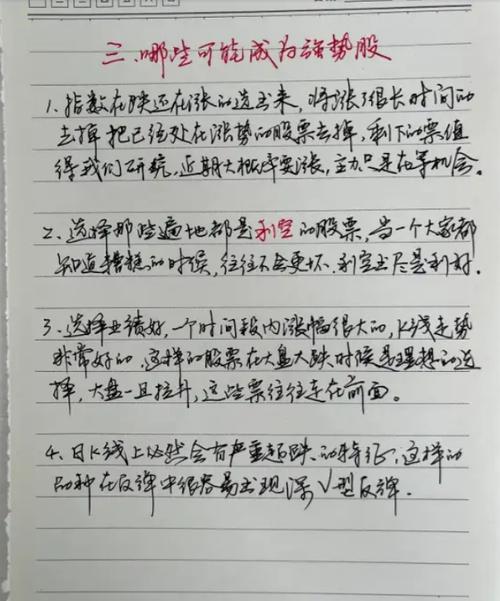 三、哪些可能成为强势股
1、指数在跌还在涨的选出来，将涨了很长时间的
去掉把已经处在涨势的股票去掉，剩下的票值
得我们研究，近期大概率要涨，主力只是在等机会。
2、选择那些遍地都是利空的股票，当一个大家都
知道糟糕的时候，往往不会更坏，利空出尽是利好。
3、选择业绩好，一个时间段内涨幅很大的，K线走势
非常好的，这样的股票在大盘大跌时候是理想的选
择，大盘一旦拉升，这些票往往走在前面。
4、日K线上必然会有严重超跌的特征，这样的
品种在反弹中很容易出现深V型反弹．